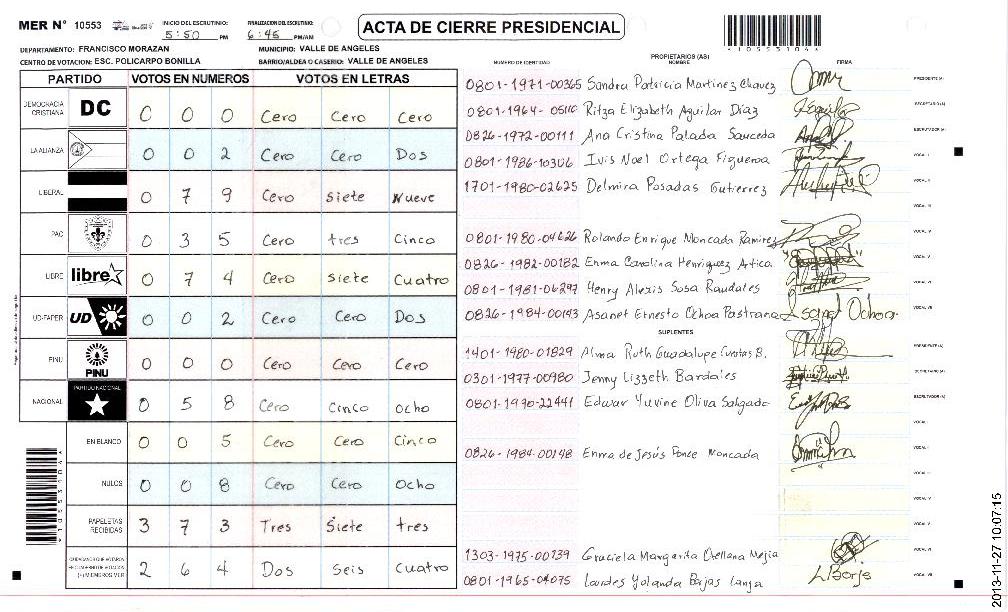 MER N° 10553
INICIO DEL ESCRUTINIO: 5:50 PM
FINALIZACION DEL ESCRUTINIO: 6:45 PM/AM
ACTA DE CIERRE PRESIDENCIAL
DEPARTAMENTO: FRANCISCO MORAZAN
MUNICIPIO: VALLE DE ANGELES
CENTRO DE VOTACION: ESC. POLICARPO BONILLA
BARRIO/ALDEA O CASERIO: VALLE DE ANGELES
PARTIDO VOTOS EN NUMEROS VOTOS EN LETRAS
DEMOCRACIA CRISTIANA DC 0 0 0 Cero Cero Cero
LA ALIANZA 0 0 2 Cero Cero Dos
LIBERAL 0 7 9 Cero Siete Nueve
PAC 0 3 5 Cero tres Cinco
LIBRE libre 0 7 4 Cero Siete Cuatro
UD-FAPER UD 0 0 2 Cero Cero Dos
PINU PINU 0 0 0 Cero Cero Cero
NACIONAL PARTIDO NACIONAL 0 5 8 Cero Cinco Ocho
EN BLANCO 0 0 5 Cero Cero Cinco
NULOS 0 0 8 Cero Cero Ocho
PAPELETAS RECIBIDAS 3 7 3 Tres Siete tres
2 6 4 Dos Seis Cuatro
NUMERO DE IDENTIDAD
PROPIETARIOS (AS)
NOMBRE
FIRMA
0801-1971-00365 Sandra Patricia Martinez Chavez PRESIDENTE(A)
0801-1964- Ritza Elizabeth Aguilar Diaz SECRETARIO(A)
0826-1972-00111 Ana Cristina Palada Sauceda ESCRUTADOR(A)
0801-1986-10306 Ivis Noel Ortega Figueroa VOCAL I
1701-1980-02625 Delmira Posadas Gutierrez VOCAL II
VOCAL III
0801-1980-04626 Rolando Enrique Moncada Ramirez VOCAL IV
0826-1982-00182 Enma Carolina Henriquez Artica VOCAL V
0801-1981-06297 Henry Alexis Sosa Raudales VOCAL VI
0826-1984-00143 Asanet Ernesto Ochoa Pastrana VOCAL VII
SUPLENTES
1401-1980-01829 Alma Ruth Guadalupe B. PRESIDENTE(A)
0301-1977-00980 Jenny Lizzeth Bardales SECRETARIO(A)
0801-1990-22441 Edwar Yuvine Oliva Salgado ESCRUTADOR(A)
VOCAL I
0826-1984-00148 Enma de Jesús Ponce Moncada
VOCAL IV
VOCAL V
1303-1975-00739 Graciela Margarita Orellana Mejia VOCAL VI
0801-1965-04075 Lourdes Yolanda VOCAL VII
L Borje
2013-11-27 10:07:15